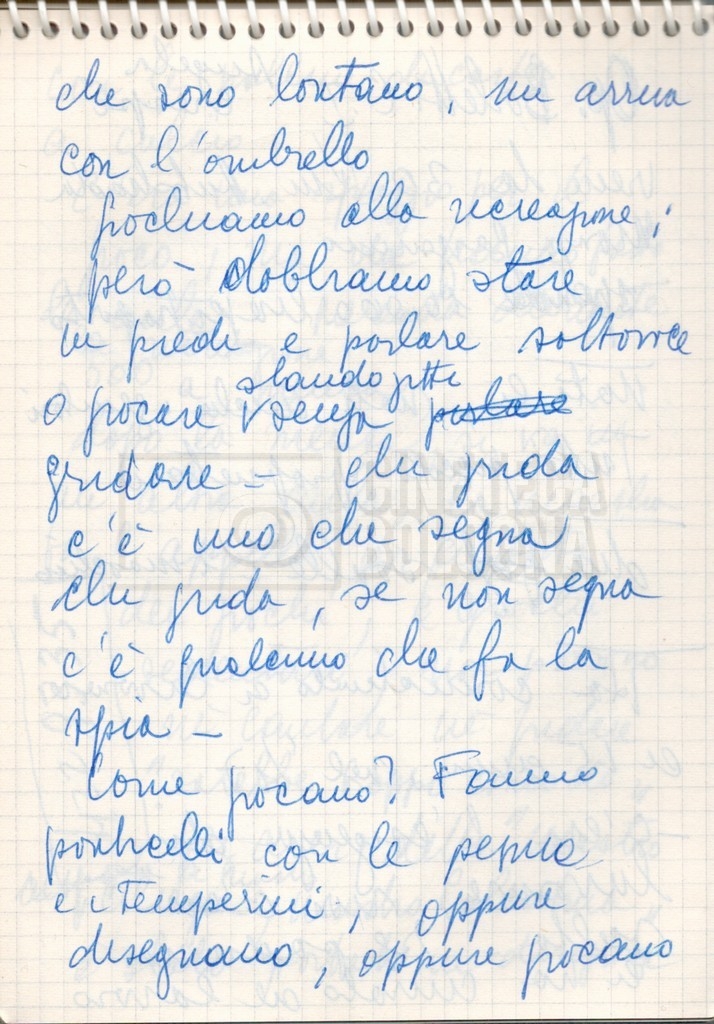 che sono lontano, mi arriva
con l'ombrello
giochiamo alla ricreazione,
però dobbiamo stare
in piedi e parlare sottovoce
stando zitti
o giocare senza parlare
gridare - chi grida
c'è uno che segna
chi grida, se non segna
c'è qualcuno che fa la
spia -
Come giocano? Fanno
ponticelli con le penne
e i temperini, oppure
disegnano, oppure giocano
CINETECA
BOLOGNA